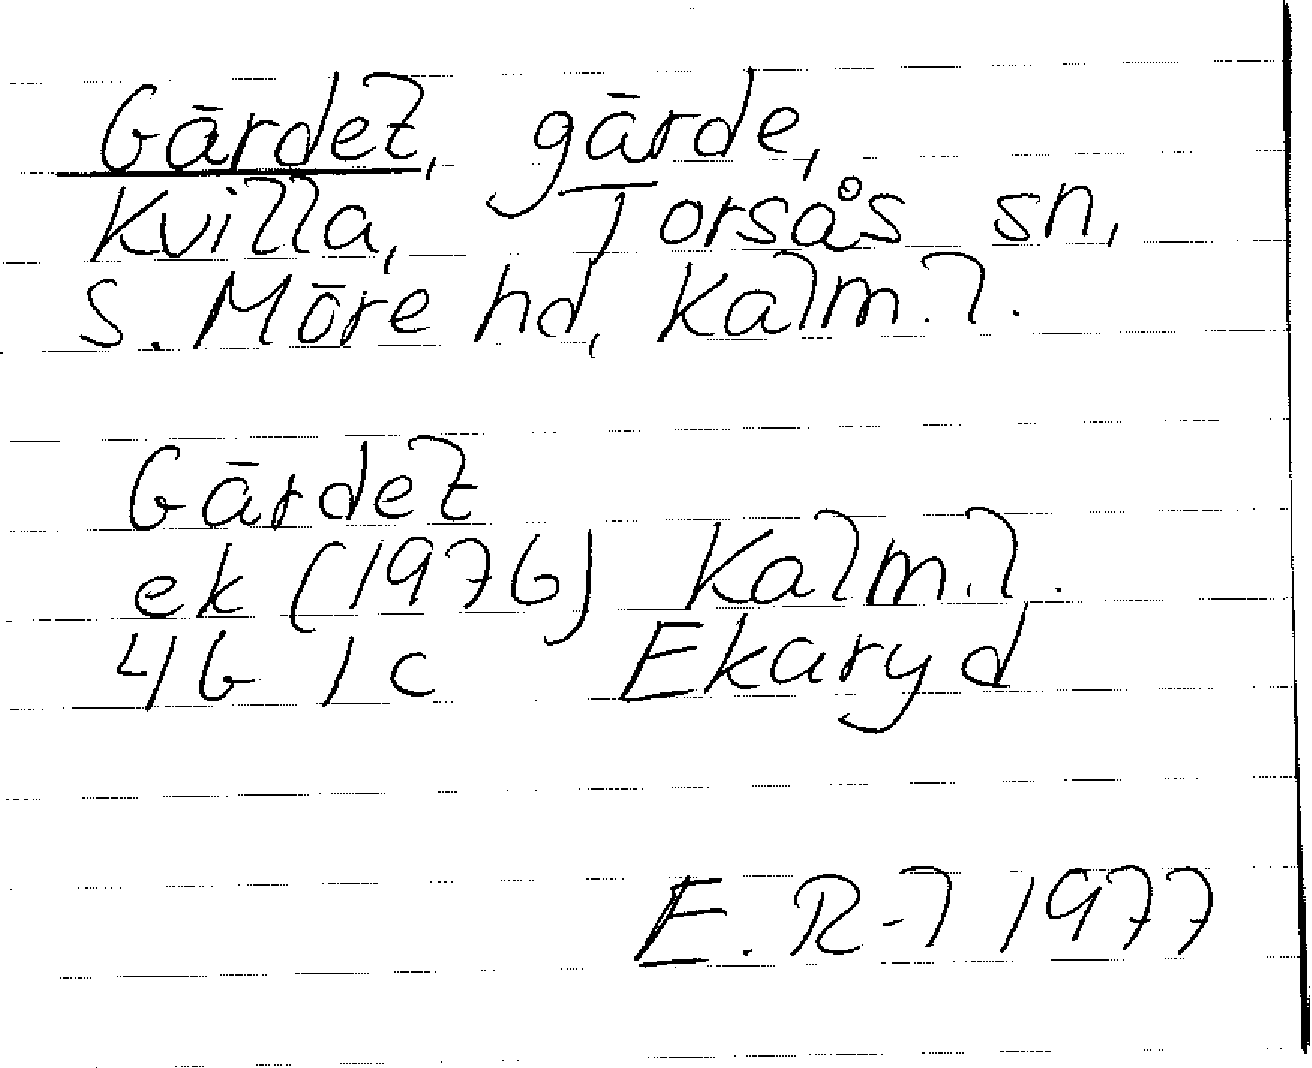 Gärdet, gärde,
Kvilla, Torsås sn,
S. Möre hd, Kalm. l.
Gärdet
ek (1976) Kalm. l.
4G 1c Ekaryd
E. R-l 1977